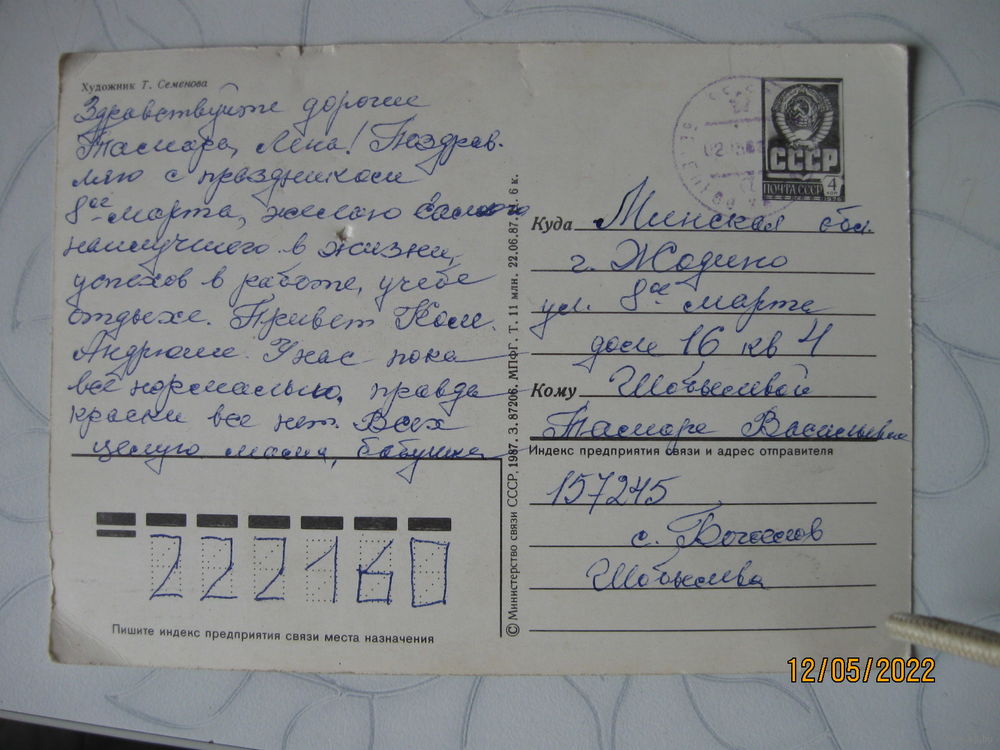 Художник Т. Семенова
Здравствуйте дорогие
Тамара, Лена! Поздрав-
ляю с праздником
8ое марта, желаю самого
наилучшего в жизни,
успехов в работе, учебе
отдыхе. Привет Коле.
Андрюше. У нас пока
всё нормально, правда
краски все нет. Всех
целую мама, бабушка
222160
Пишите индекс предприятия связи места назначения
© Министерство связи СССР, 1987. З. 87206. МПФГ. Т. 11 млн. 22.06.87. Ц. 6 к.
СССР
ПОЧТА СССР 4 коп
1976
Куда Минская обл.
г. Жодино
ул. 8ое марта
дом 16 кв 4
Кому
Тамаре Васильевне
Индекс предприятия связи и адрес отправителя
157245
с.
12/05/2022